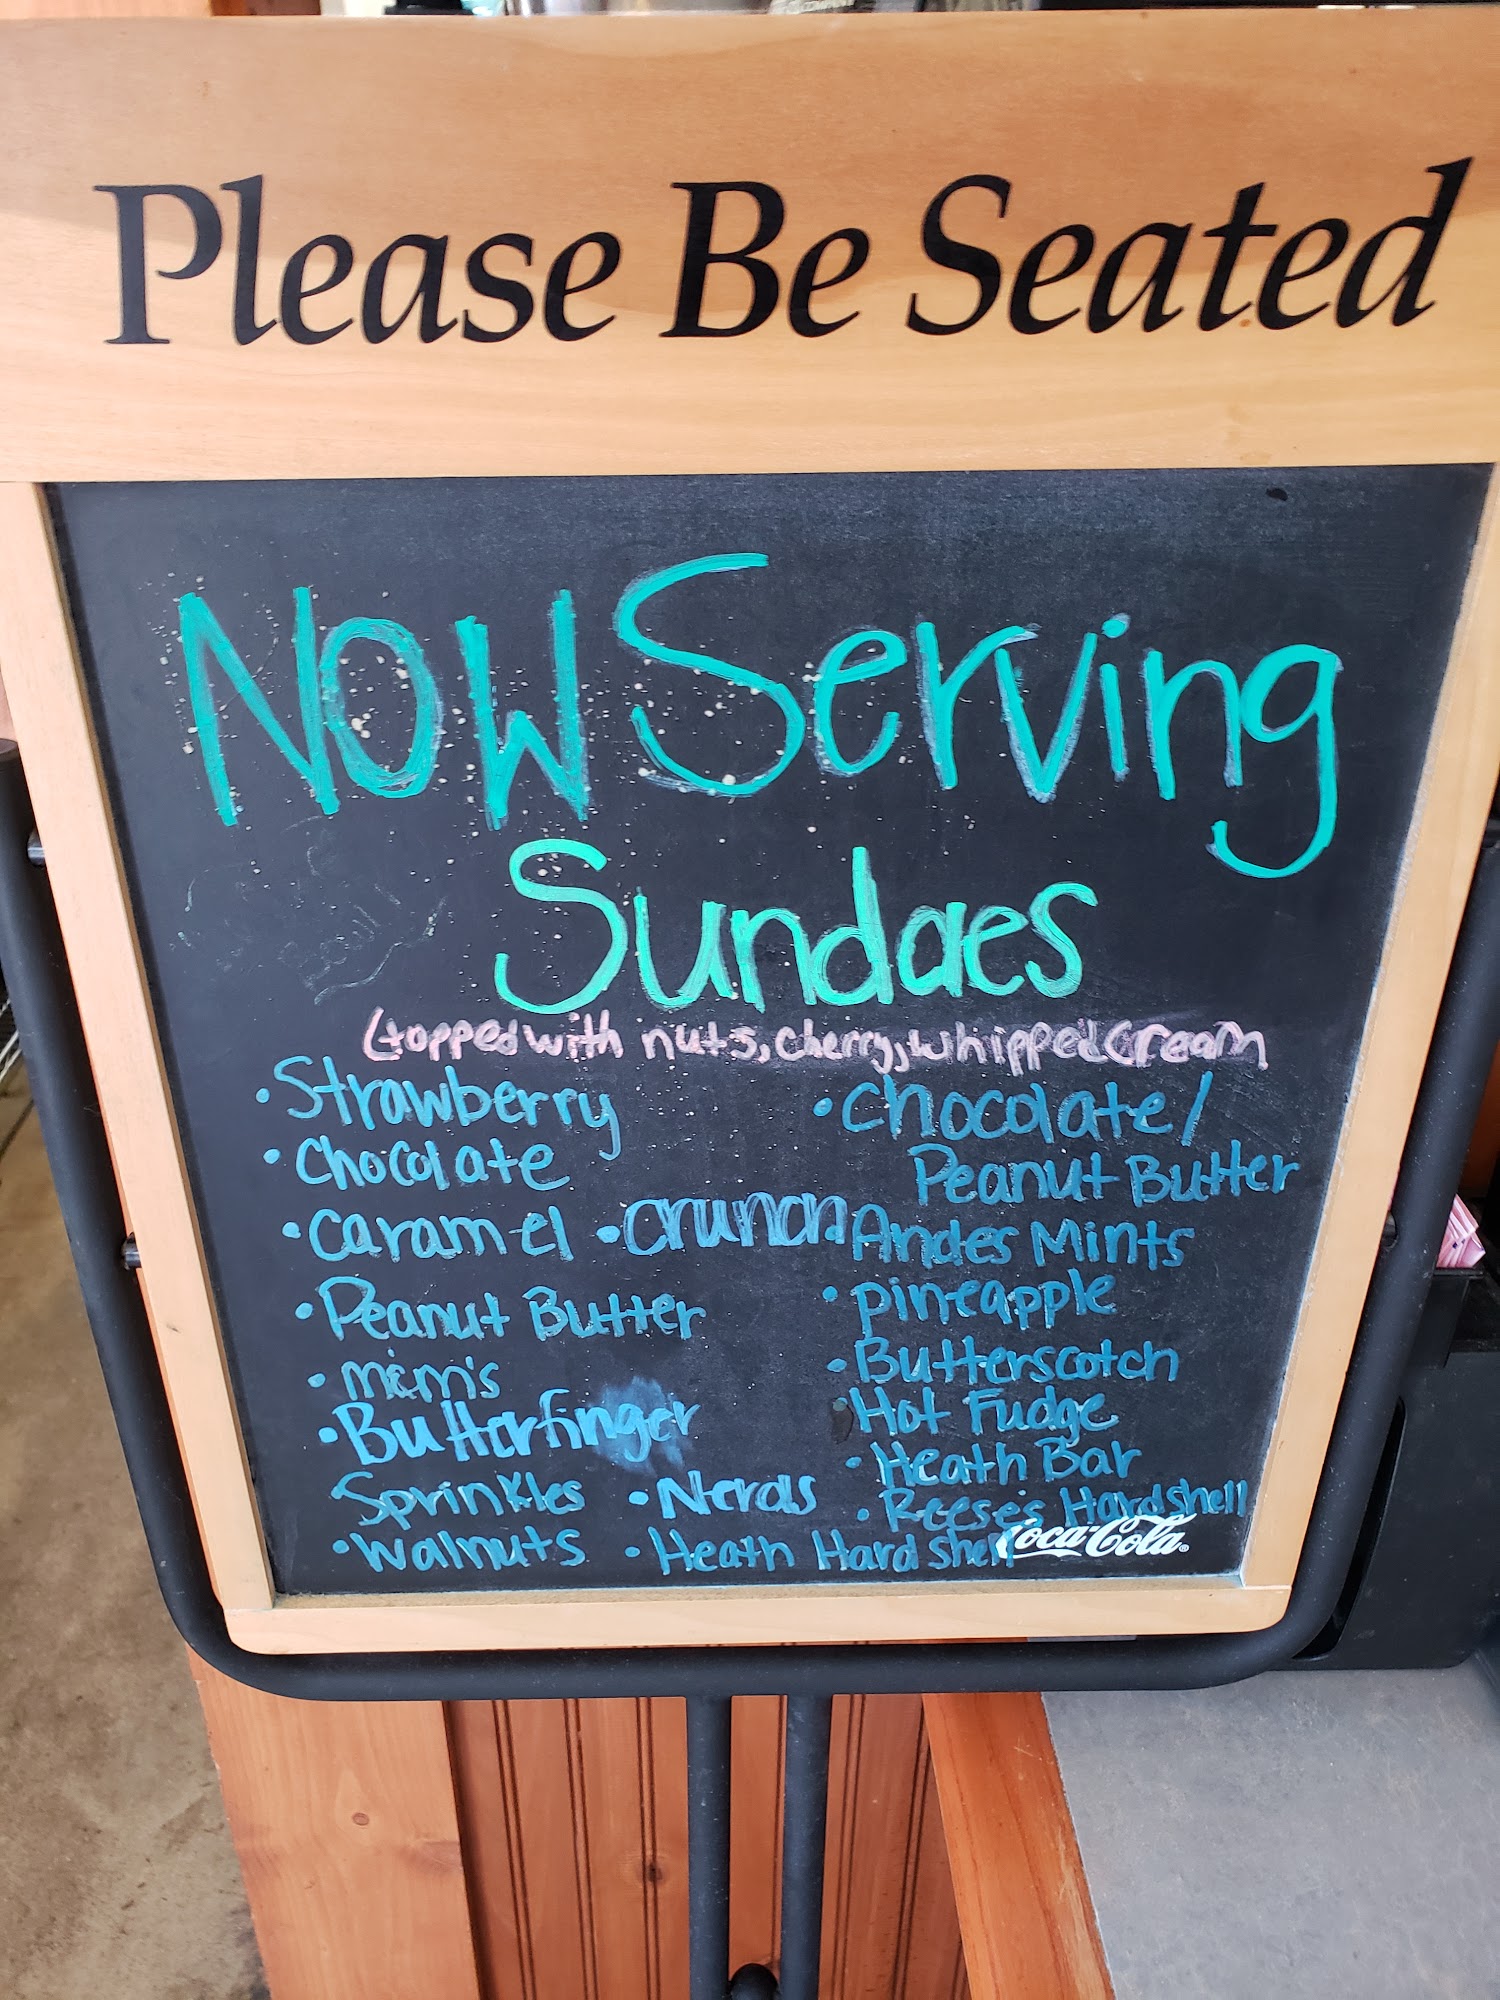 Please Be Seated
NOW Serving
Sundaes
topped with nuts, cherry, whipped cream
• Strawberry
• Chocolate
• Caramel • Crunch
• Peanut Butter
• m&m's
• Butterfinger
Sprinkles • Nerds
• Walnuts • Heath Hard Shell
• Chocolate/
Peanut Butter
Andes Mints
• pineapple
• Butterscotch
• Hot Fudge
• Heath Bar
• Reese's Hardshell
Coca-Cola®